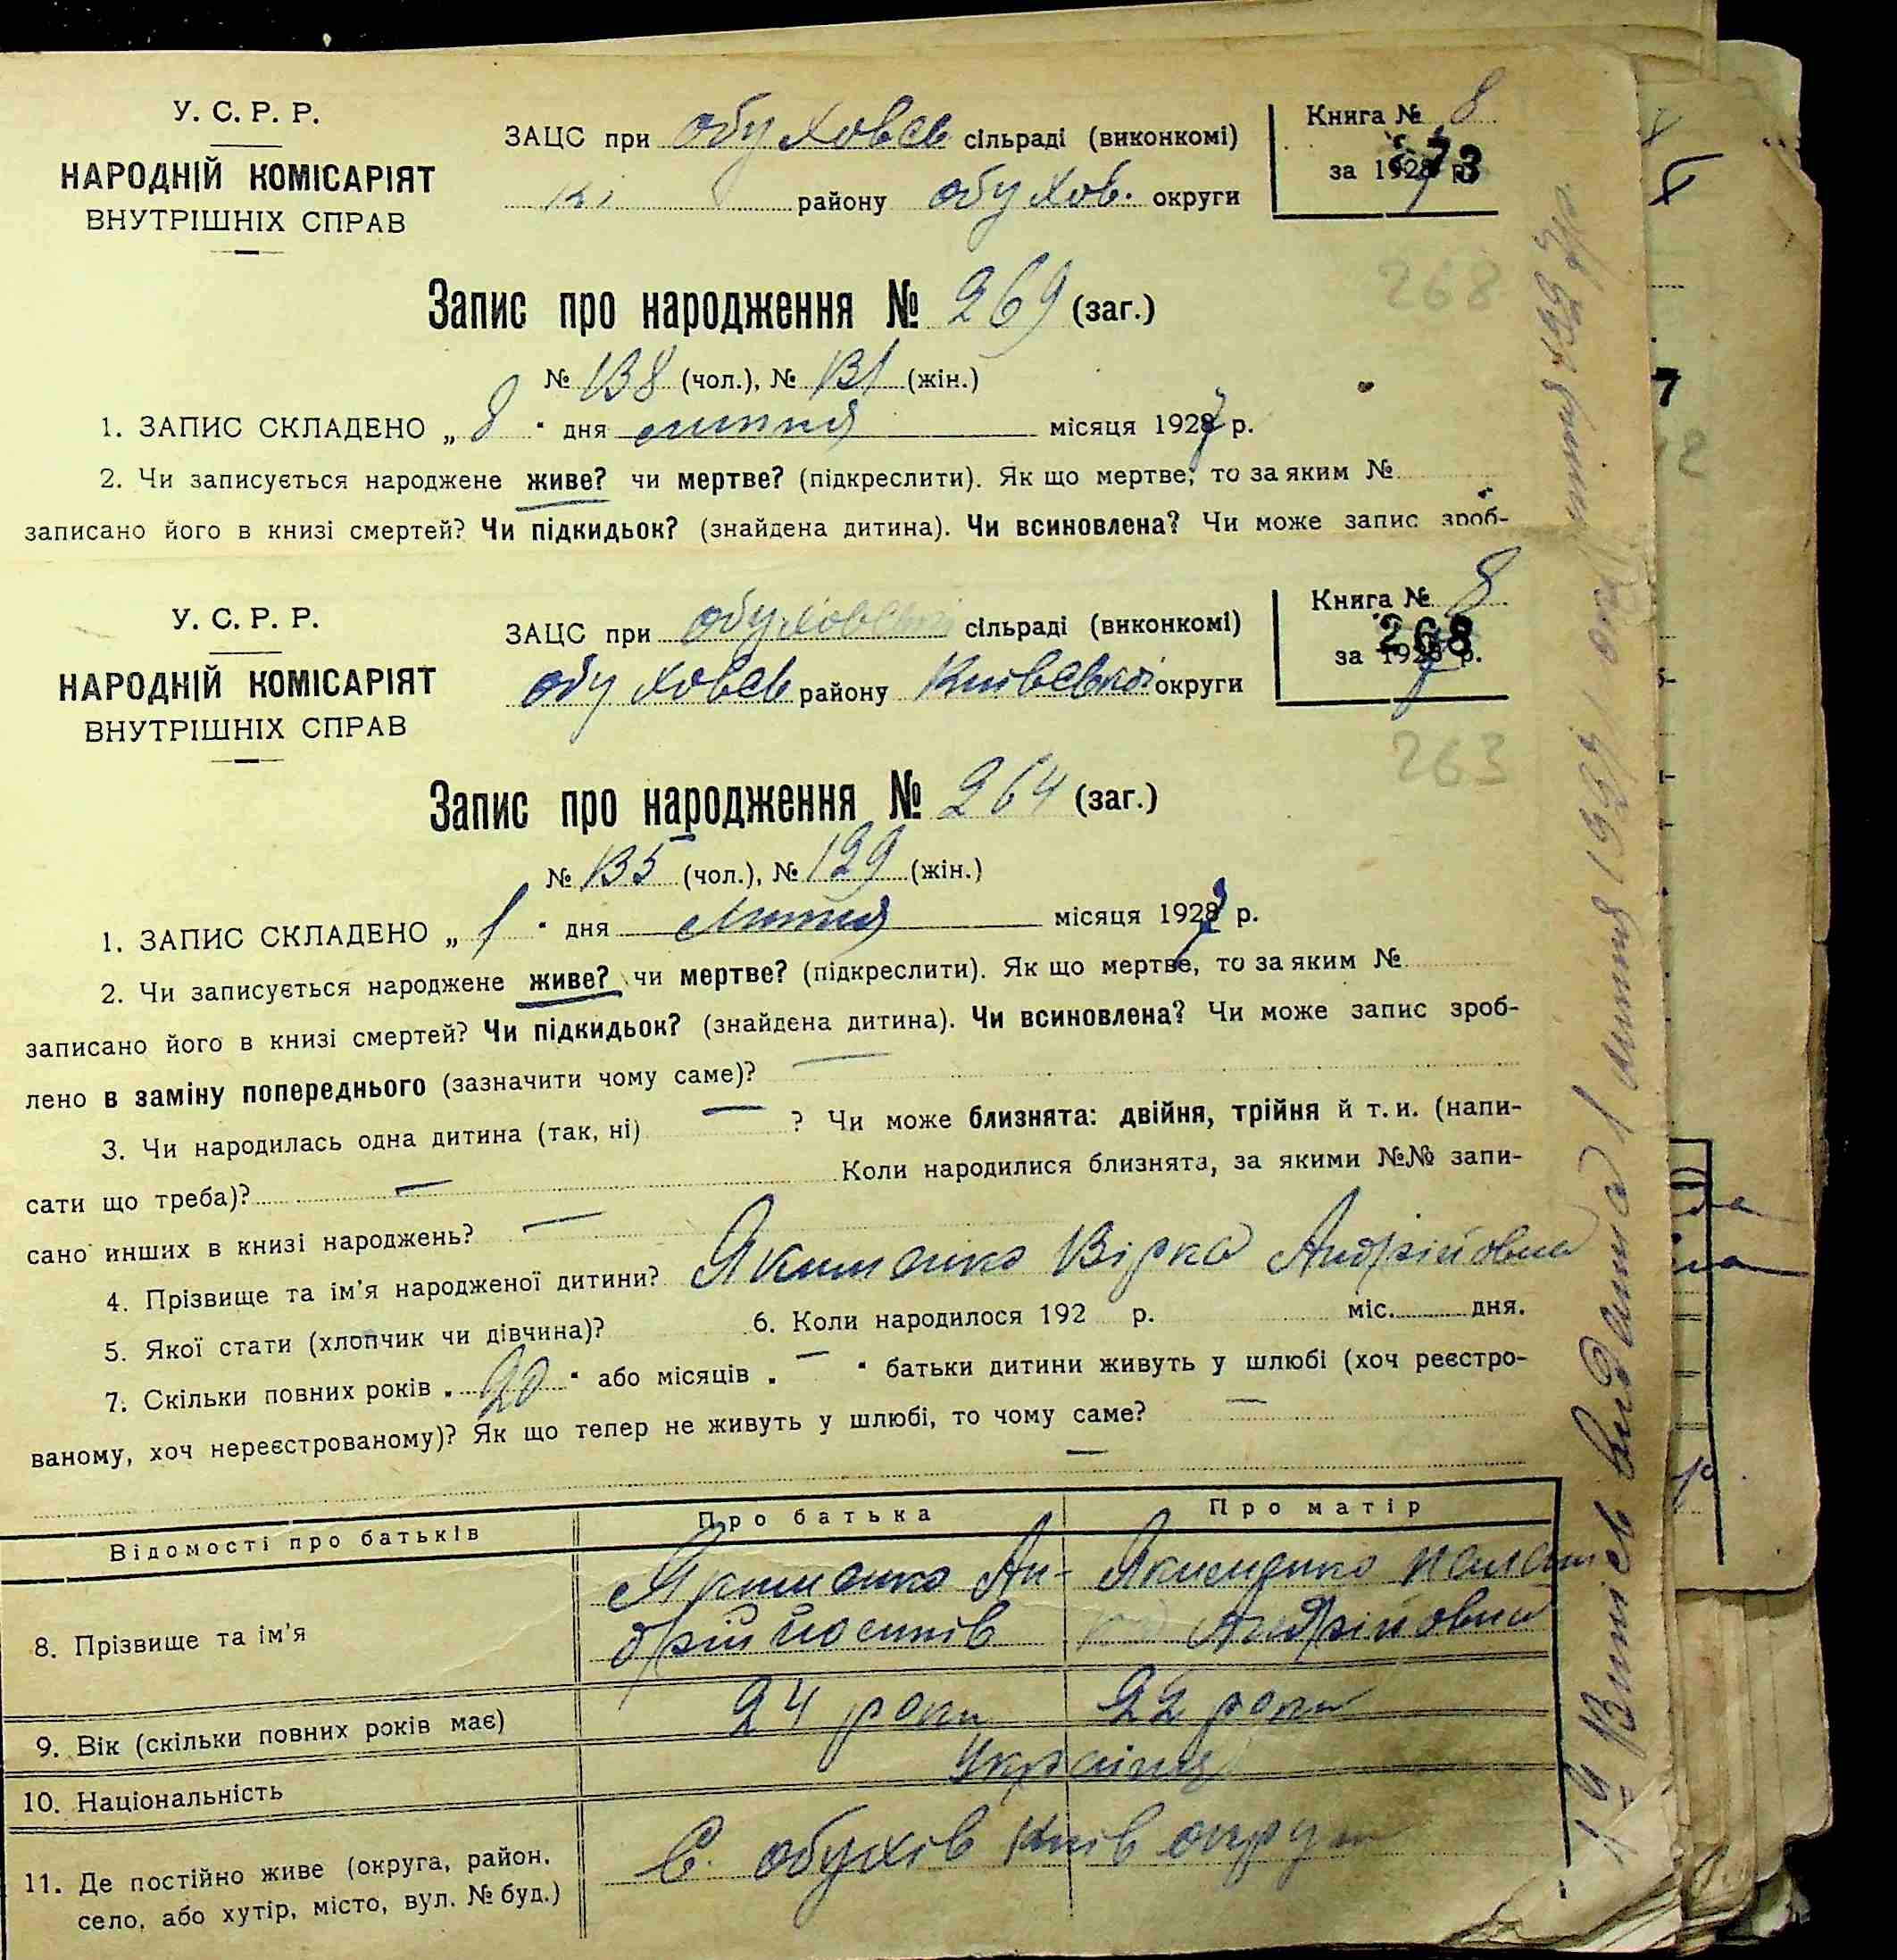 У. С. Р. Р.
НАРОДНІЙ КОМІСАРІЯТ
ВНУТРІШНІХ СПРАВ
ЗАЦС при Обуховсь сільраді (виконкомі)
району Обухов. округи
Книга № 8
за 1927 р.
273
268
Запис про народження № 269 (заг.)
№ 138 (чол.), № 131 (жін.)
1. ЗАПИС СКЛАДЕНО „ 8 “ дня липня місяця 1927 р.
2. Чи записується народжене живе? чи мертве? (підкреслити). Як що мертве, то за яким №
записано його в книзі смертей? Чи підкидьок? (знайдена дитина). Чи всиновлена? Чи може запис зроб-
У. С. Р. Р.
НАРОДНІЙ КОМІСАРІЯТ
ВНУТРІШНІХ СПРАВ
ЗАЦС при Обуховській сільраді (виконкомі)
Обуховсь району Київської округи
Книга № 8
за 1927 р.
268
263
Запис про народження № 264 (заг.)
№ 135 (чол.), № 129 (жін.)
1. ЗАПИС СКЛАДЕНО „ 1 “ дня Липня місяця 1927 р.
2. Чи записується народжене живе? чи мертве? (підкреслити). Як що мертве, то за яким №
записано його в книзі смертей? Чи підкидьок? (знайдена дитина). Чи всиновлена? Чи може запис зроб-
лено в заміну попереднього (зазначити чому саме)? —
3. Чи народилась одна дитина (так, ні) — ? Чи може близнята: двійня, трійня й т. и. (напи-
сати що треба)? — Коли народилися близнята, за якими №№ запи-
сано инших в книзі народжень? —
4. Прізвище та ім'я народженої дитини? Якименко Вірка Андрійовна
5. Якої стати (хлопчик чи дівчина)? 6. Коли народилося 192 р. міс. дня.
7. Скільки повних років „ 20 “ або місяців „ — “ батьки дитини живуть у шлюбі (хоч реєстро-
ваному, хоч нереєстрованому)? Як що тепер не живуть у шлюбі, то чому саме? —
—
Відомості про батьків Про батька Про матір
8. Прізвище та ім'я Якименко Ан- Якименко Палаш
дрій Йосипів Андрійовна
9. Вік (скільки повних років має) 24 роки 22 роки
10. Національність Українці
11. Де постійно живе (округа, район, С. Обухів Київ округи
село, або хутір, місто, вул. № буд.)
Витяг видано 1 липня 1927 р.